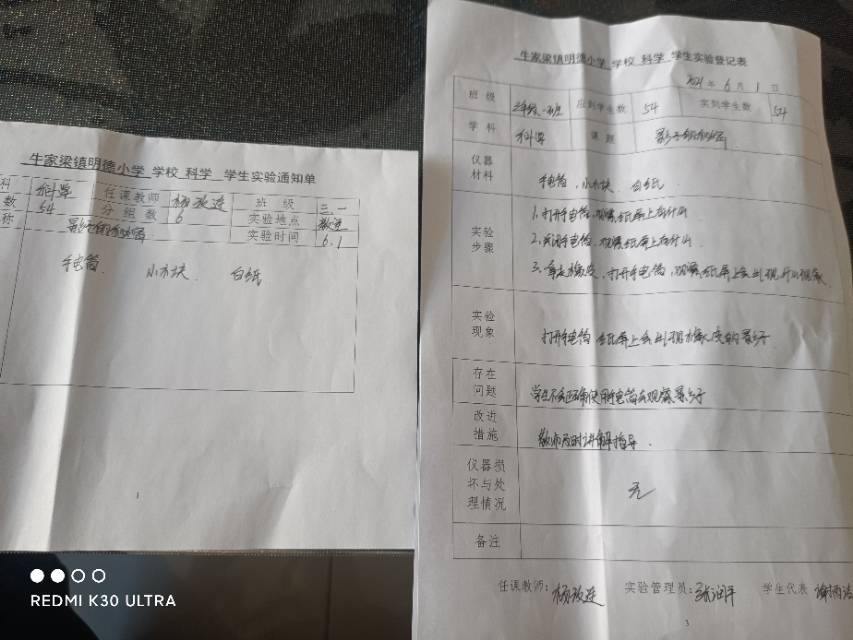 牛家梁镇明德小学 学校 科学 学生实验通知单
科 科学 任课教师 杨改连 班级 三.一
数 54 分组数 6 实验地点 教室
称 实验时间 6.1
手电筒 小木块 白纸
1
REDMI K30 ULTRA
牛家梁镇明德小学 学校 科学 学生实验登记表
2021年6月1日
班级 三年级一班 应到学生数 54 实到学生数 54
学科 科学 课题 影子的秘密
仪器
材料
手电筒,小木块 白纸
实验
步骤
1.打开手电筒,观察纸屏上有什么
2.关闭手电筒,观察纸屏上有什么.
3.拿走橡皮,打开手电筒,观察纸屏上会出现什么现象.
实验
现象
打开手电筒 纸屏上会出现橡皮的影子.
存在
问题
学生不会正确使用手电筒去观察影子
改进
措施
教师及时讲解指导.
仪器损
坏与处
理情况
无
备注
任课教师: 杨改连 实验管理员: 张润平 学生代表
3